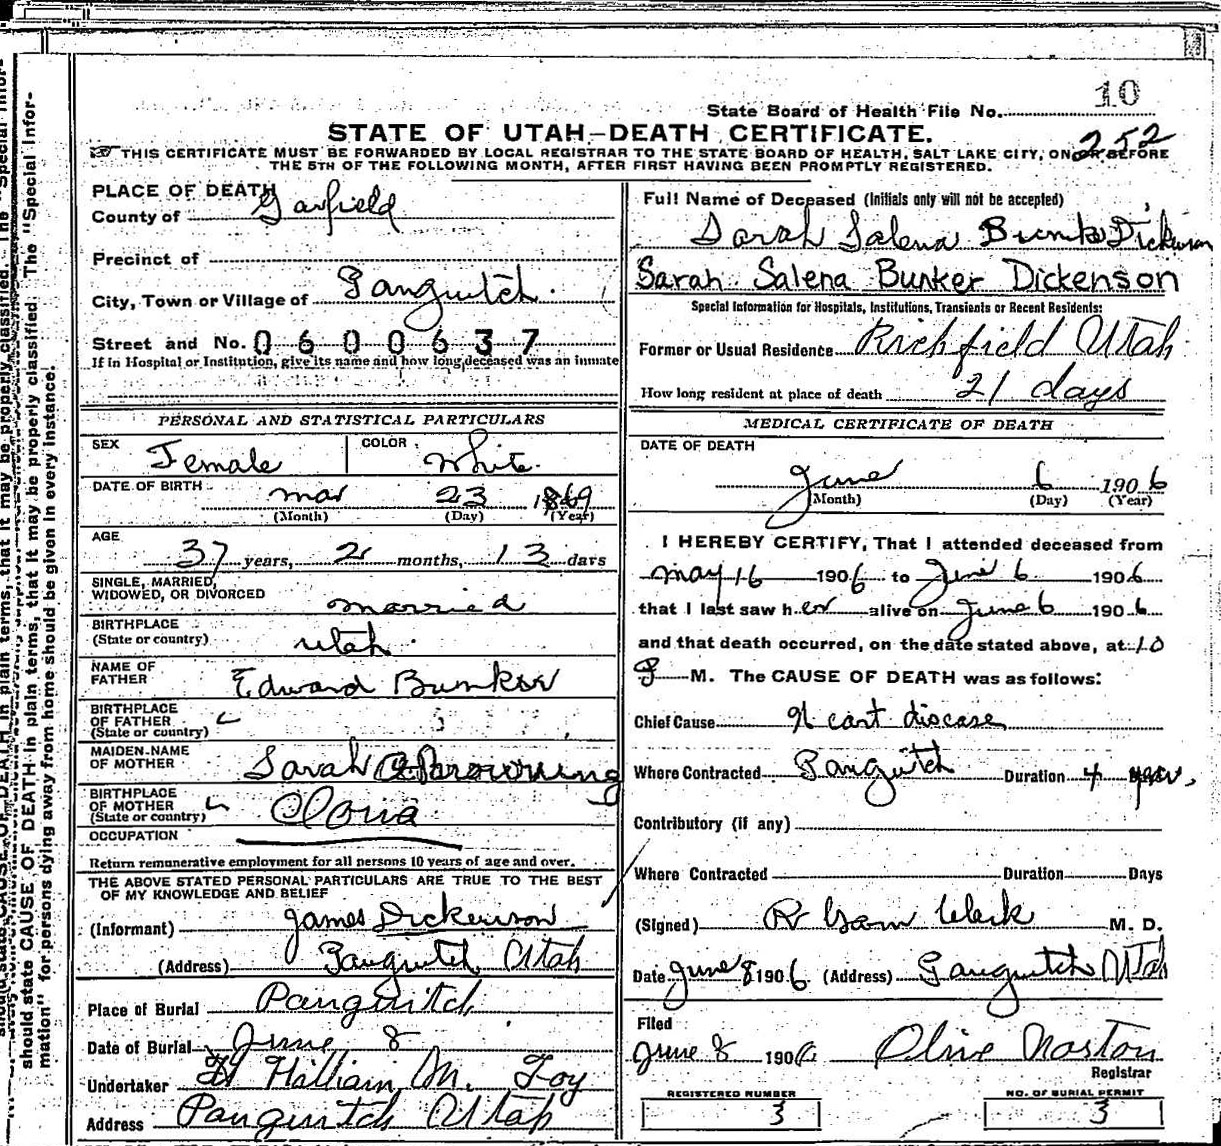 10
State Board of Health File No.
STATE OF UTAH—DEATH CERTIFICATE.
252
THIS CERTIFICATE MUST BE FORWARDED BY LOCAL REGISTRAR TO THE STATE BOARD OF HEALTH, SALT LAKE CITY, ON OR BEFORE
THE 5TH OF THE FOLLOWING MONTH, AFTER FIRST HAVING BEEN PROMPTLY REGISTERED.
PLACE OF DEATH
County of Garfield
Precinct of
City, Town or Village of Panguitch.
Street and No. 0600637
If in Hospital or Institution, give its name and how long deceased was an inmate
PERSONAL AND STATISTICAL PARTICULARS
SEX Female COLOR White.
DATE OF BIRTH mar 23 1869
(Month) (Day) (Year)
AGE
37 years, 2 months, 13 days
SINGLE, MARRIED,
WIDOWED, OR DIVORCED married
BIRTHPLACE
(State or country) utah.
NAME OF
FATHER Edward Bunker
BIRTHPLACE
OF FATHER
(State or country)
MAIDEN-NAME
OF MOTHER Sarah Browning
BIRTHPLACE
OF MOTHER
(State or country)
OCCUPATION
Return remunerative employment for all persons 10 years of age and over.
THE ABOVE STATED PERSONAL PARTICULARS ARE TRUE TO THE BEST
OF MY KNOWLEDGE AND BELIEF
(Informant) James Dickenson
(Address) Panguitch Utah
Place of Burial Panguitch
Date of Burial June 8
Undertaker William M. Foy
Address Panguitch Utah
Full Name of Deceased (Initials only will not be accepted)
Sarah Salena Bunker Dickenson
Sarah Salena Bunker Dickenson
Special Information for Hospitals, Institutions, Transients or Recent Residents:
Former or Usual Residence Richfield Utah
How long resident at place of death 21 days
MEDICAL CERTIFICATE OF DEATH
DATE OF DEATH
June 6 1906
(Month) (Day) (Year)
I HEREBY CERTIFY, That I attended deceased from
may 16 1906 to June 6 1906
that I last saw her alive on June 6 1906
and that death occurred, on the date stated above, at 10
P M. The CAUSE OF DEATH was as follows:
Chief Cause Heart disease
Where Contracted Panguitch Duration 4 years,
Contributory (if any)
Where Contracted Duration Days
(Signed) R Clark M. D.
Date June 8 1906 (Address) Panguitch Utah
Filed
June 8 1906 Olive Norton
Registrar
REGISTERED NUMBER
3
NO. OF BURIAL PERMIT
3
should state CAUSE OF DEATH in plain terms, that it may be properly classified. The "Special Infor-
mation" for persons dying away from home should be given in every instance.